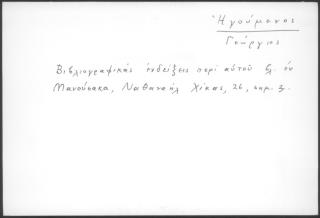 Ἡγούμενος
Γεώργιος
Βιβλιογραφικὰς ἐνδείξεις περὶ αὐτοῦ βλ. ἐν
Μανούσακα, Ναθαναὴλ Χίκας, 26, σημ. 3.